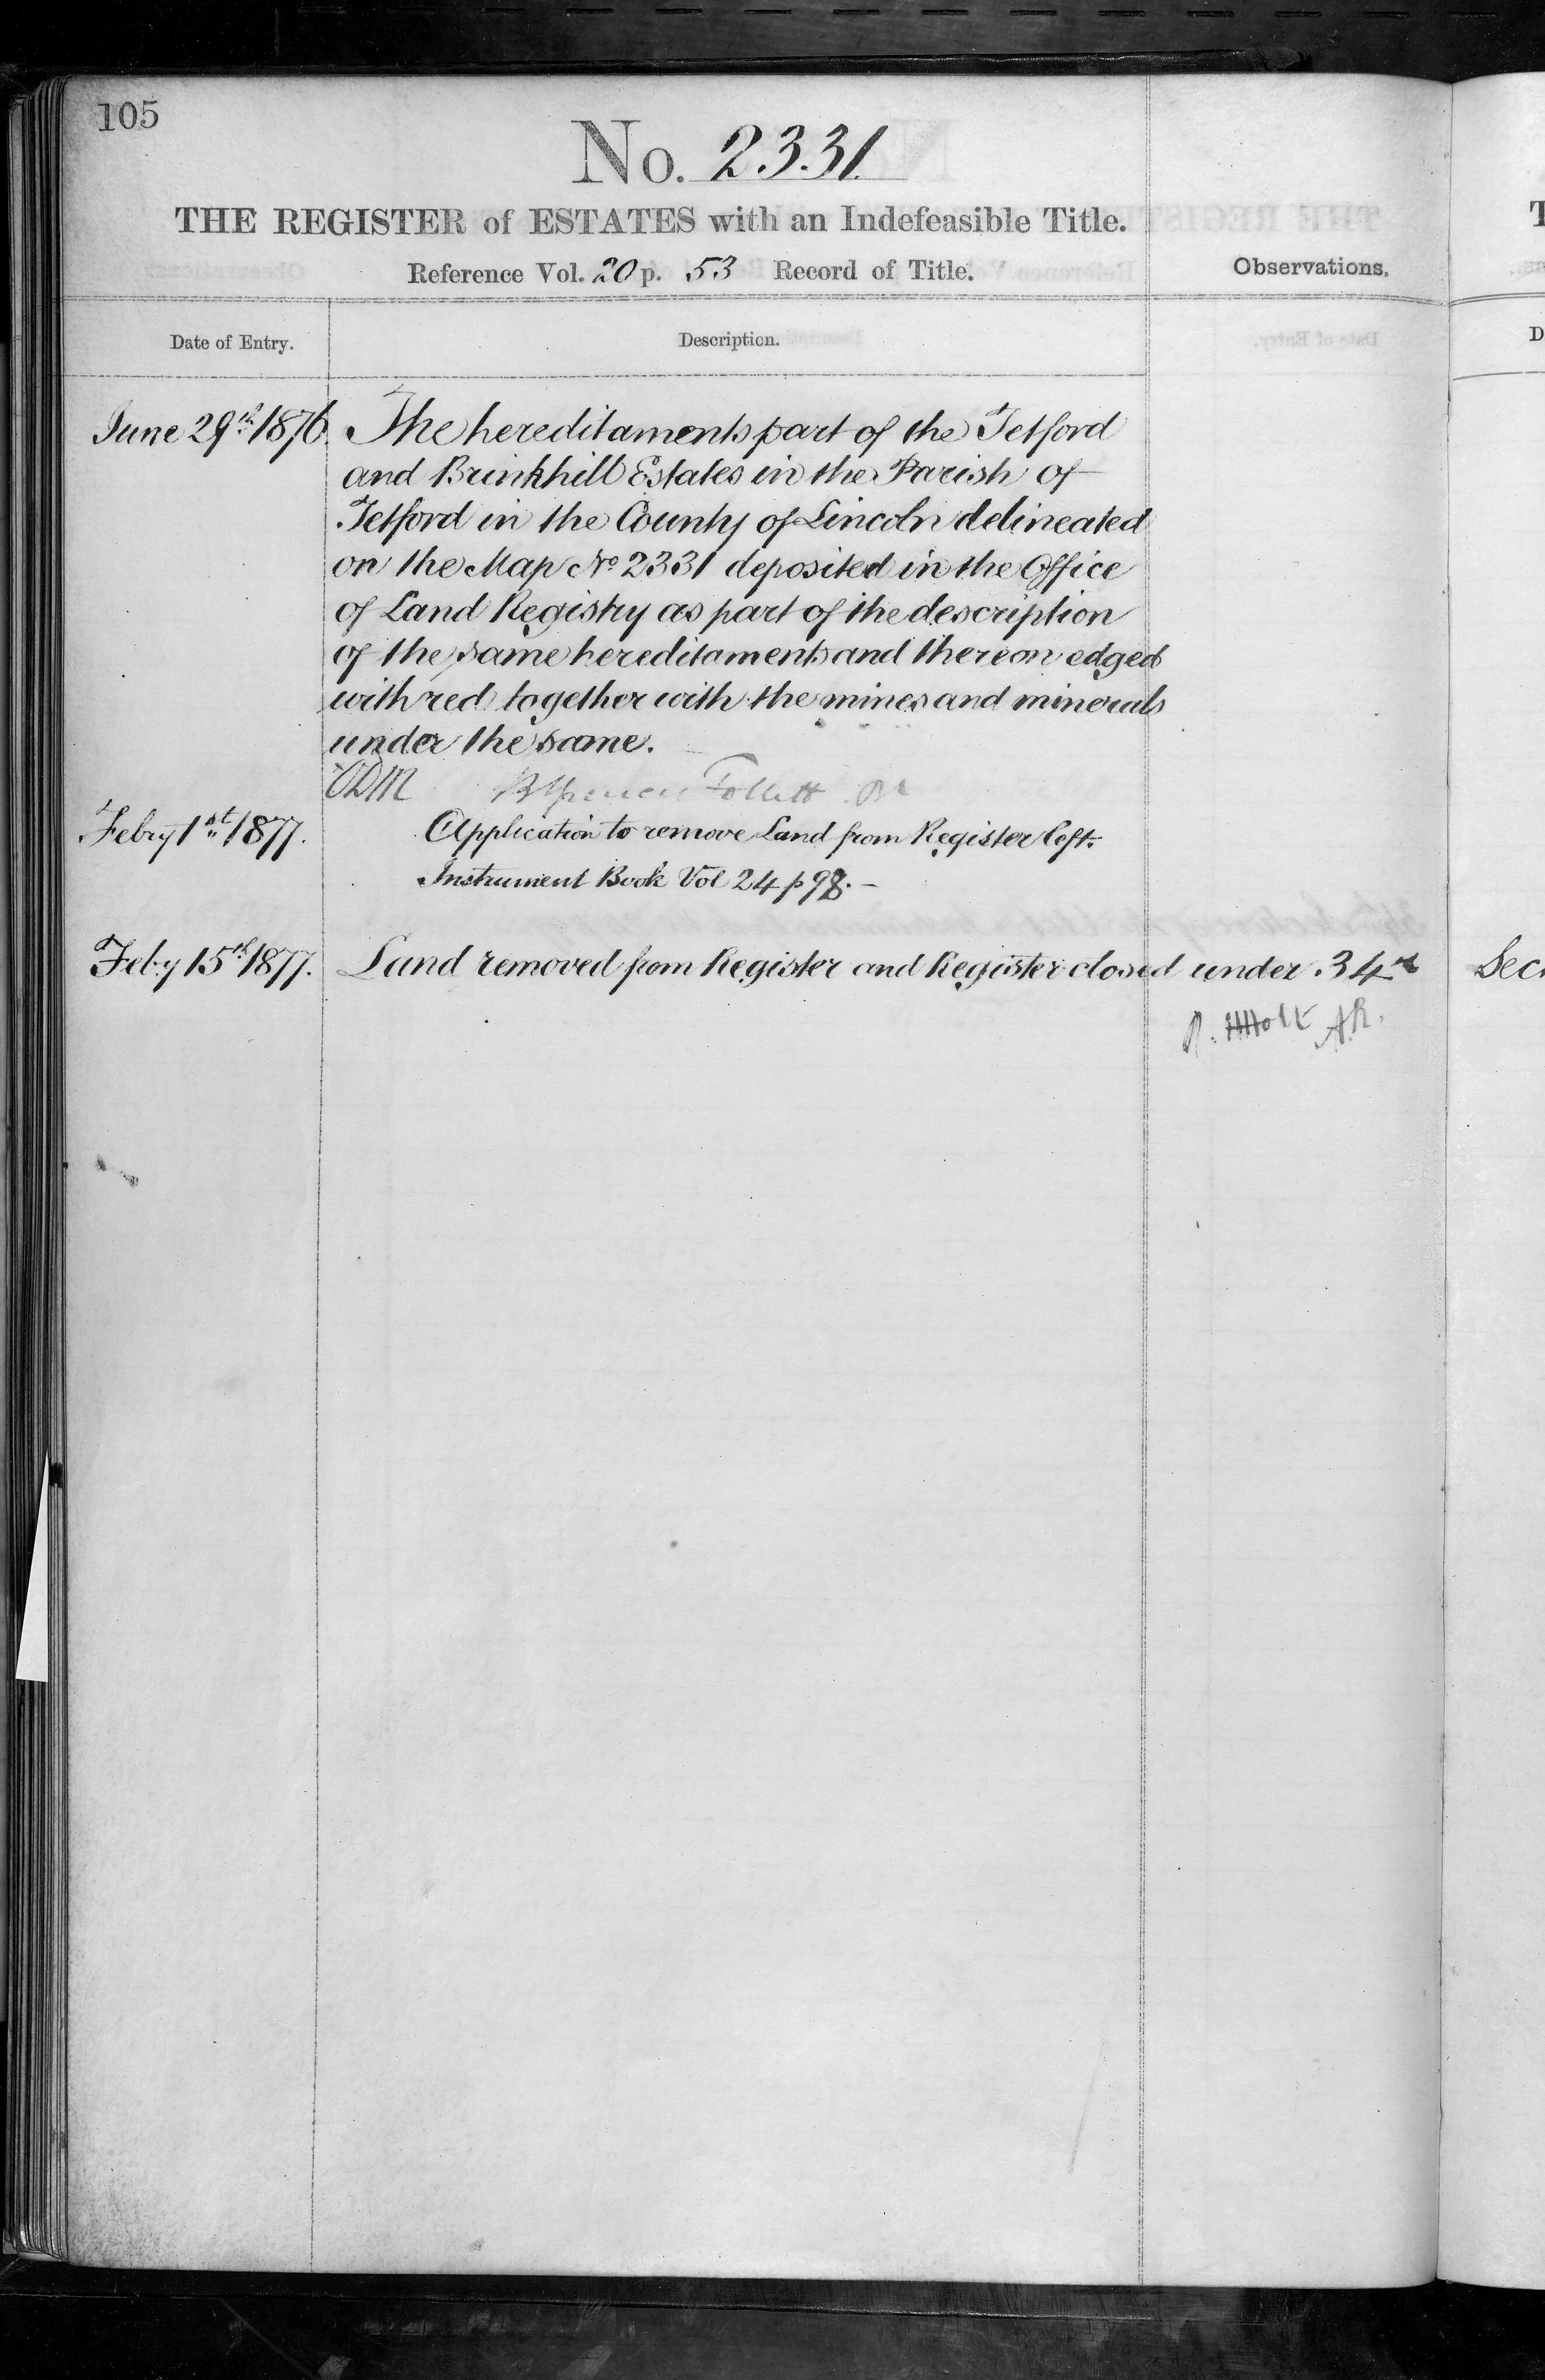 105
No. 2331
THE REGISTER of ESTATES with an Indefeasible Title.
Reference Vol. 20 p. 53 Record of Title.
Observations.
Date of Entry.
Description.
June 29th 1876. The hereditaments part of the Tetford
and Brinkhill Estates in the Parish of
Tetford in the County of Lincoln delineated
on the Map No 2331 deposited in the Office
of Land Registry as part of the description
of the same hereditaments and thereon edged
with red together with the mines and minerals
under the same.
Follett
Febry 1st 1877. Application to remove Land from Register left.
Instrument Book Vol 24 p 98. –
Feby 15th 1877. Land removed from Register and Register closed under 34th Sec
R. Holt A.R.